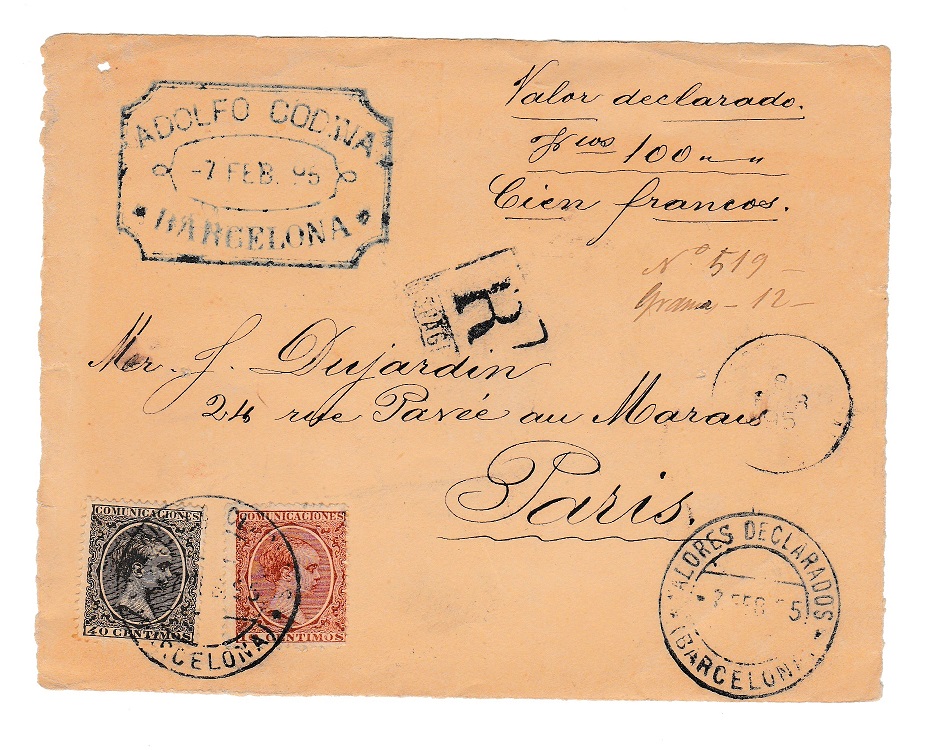 ADOLFO CODINA
-7 FEB. 95
BARCELONA
Valor declarado.
Fcos 100 " "
Cien francos.
Nº 519 -
Grams - 12 -
R
Mer. J. Dujardin
24 rue Pavée au Marais
Paris.
8
95
COMUNICACIONES
40 CENTIMOS
COMUNICACIONES
CENTIMOS
BARCELONA
VALORES DECLARADOS
7 FEB 95
(BARCELONA)